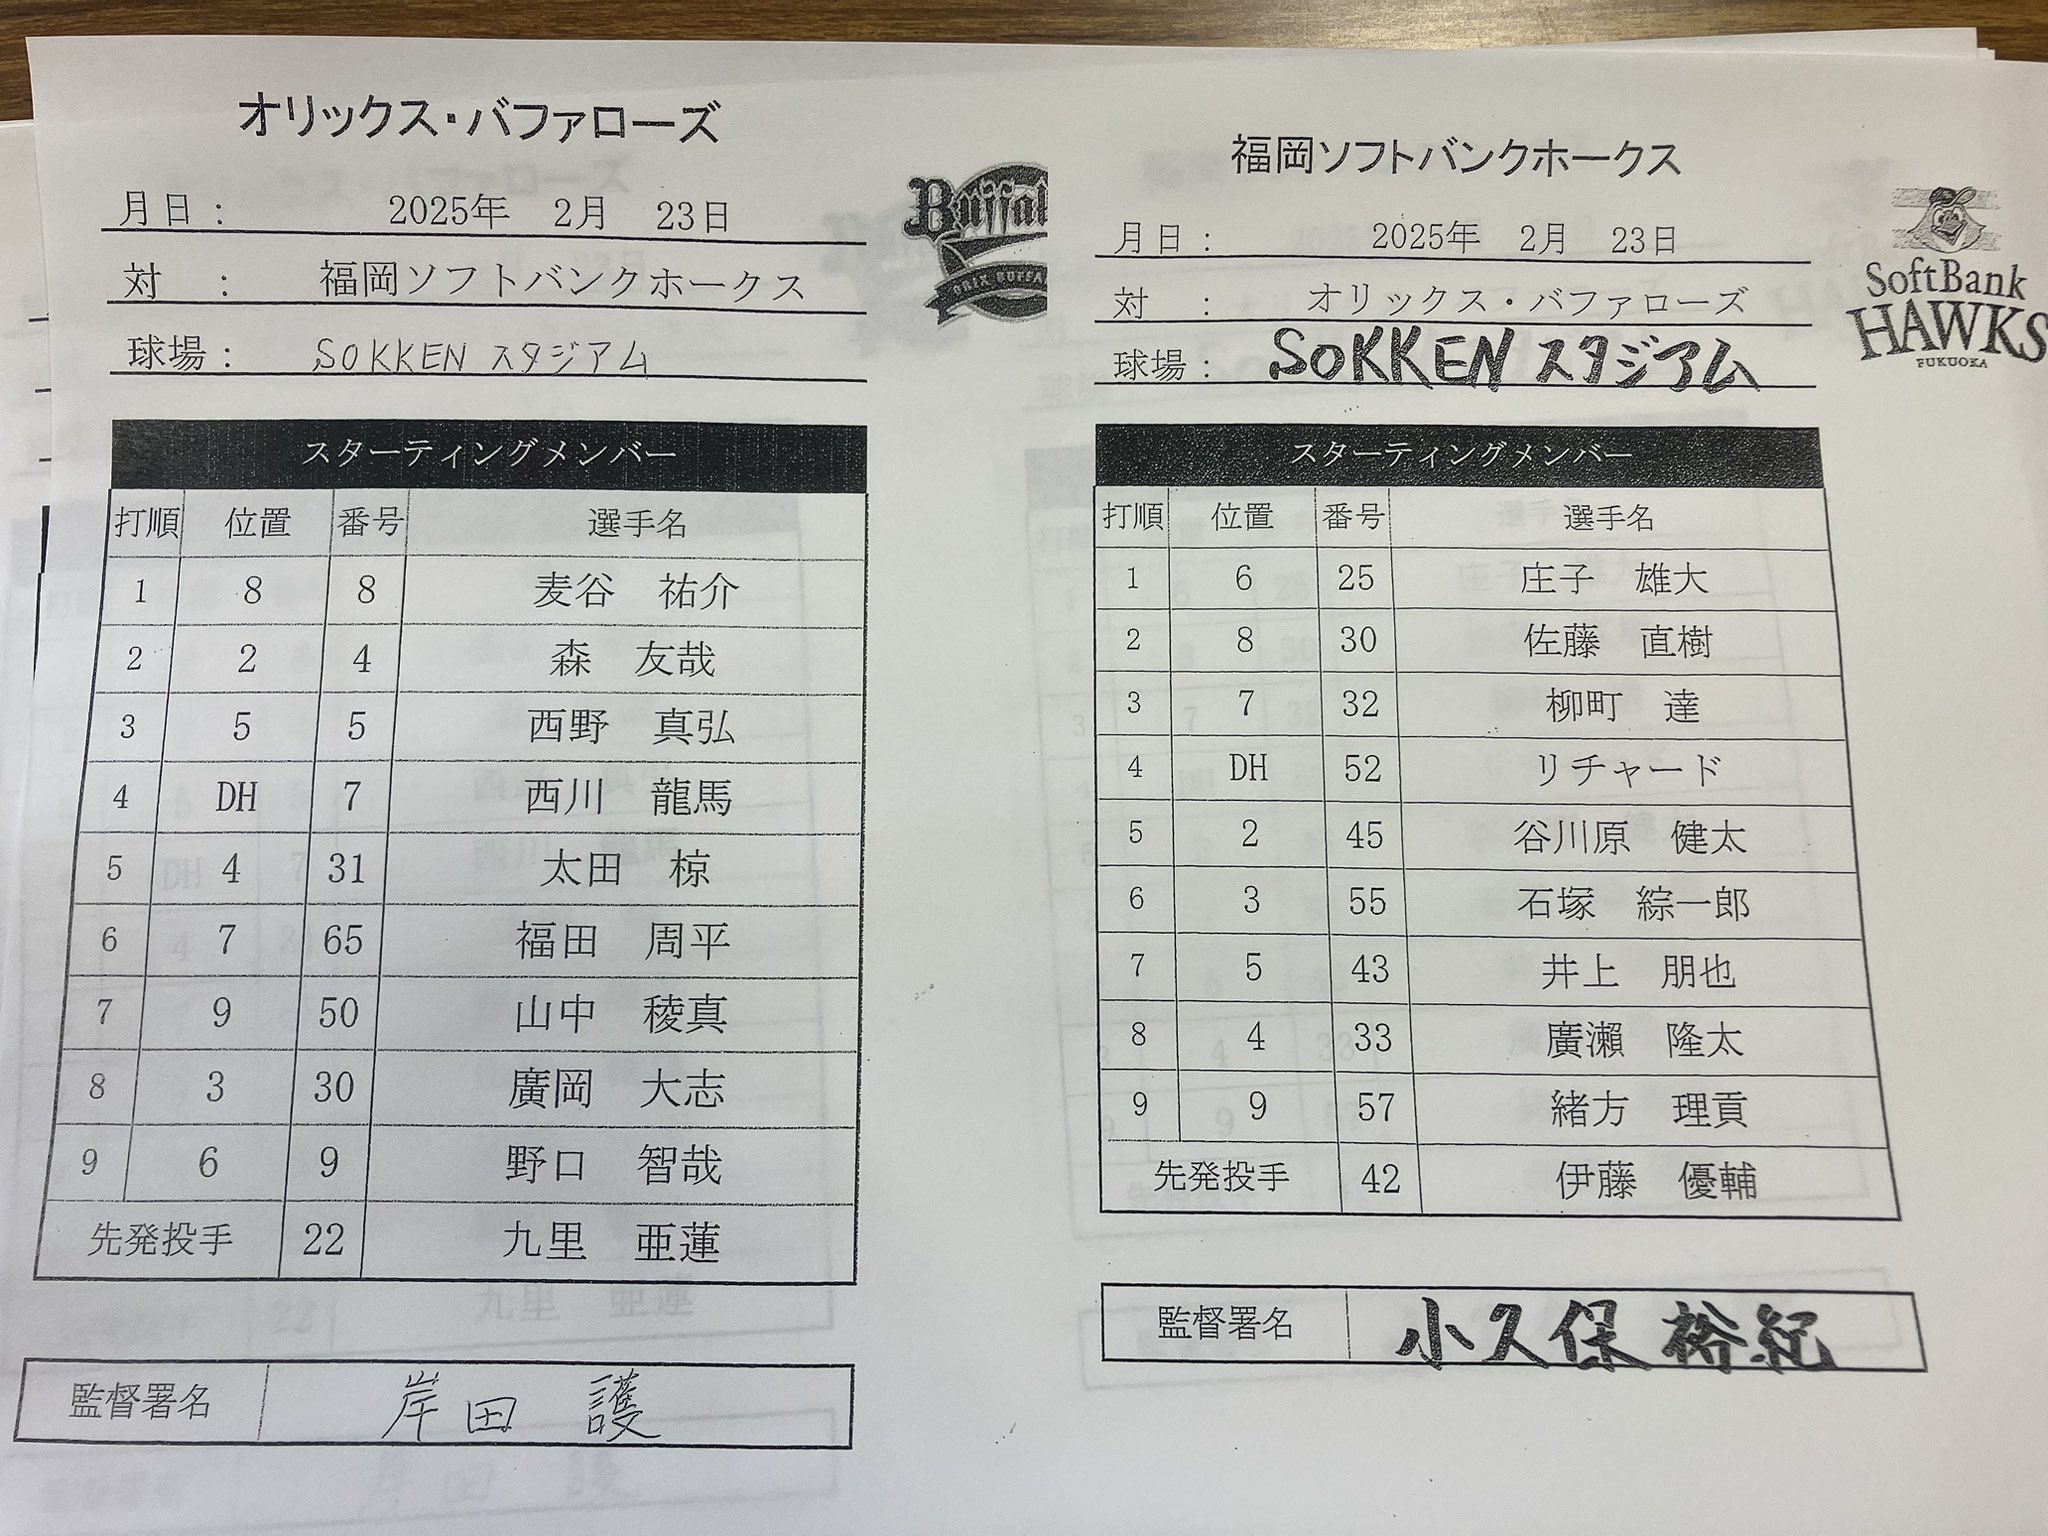 オリックス・バファローズ
月日： 2025年 2月 23日
対 ： 福岡ソフトバンクホークス
球場： SOKKEN スタジアム
スターティングメンバー
打順 位置 番号 選手名
1 8 8 麦谷 祐介
2 2 4 森 友哉
3 5 5 西野 真弘
4 DH 7 西川 龍馬
5 4 31 太田 椋
6 7 65 福田 周平
7 9 50 山中 稜真
8 3 30 廣岡 大志
9 6 9 野口 智哉
先発投手 22 九里 亜蓮
監督署名 岸田 護
福岡ソフトバンクホークス
月日： 2025年 2月 23日
対 ： オリックス・バファローズ
球場： SOKKEN スタジアム
SoftBank
HAWKS
FUKUOKA
スターティングメンバー
打順 位置 番号 選手名
1 6 25 庄子 雄大
2 8 30 佐藤 直樹
3 7 32 柳町 達
4 DH 52 リチャード
5 2 45 谷川原 健太
6 3 55 石塚 綜一郎
7 5 43 井上 朋也
8 4 33 廣瀨 隆太
9 9 57 緒方 理貢
先発投手 42 伊藤 優輔
監督署名 小久保 裕紀